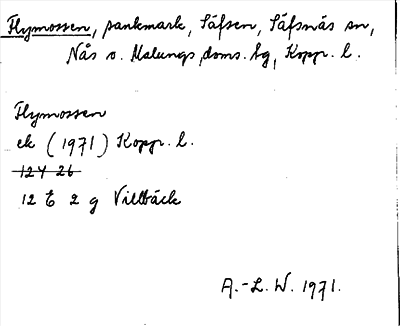 Flymossen, sankmark, Säfsen, Säfsnäs sn,
Nås o. Malungs doms. hg, Kopp. l.
Flymossen
ek (1971) Kopp. l.
12 Y 26
12 E 2 g Villbäck
A.-L. W. 1971.